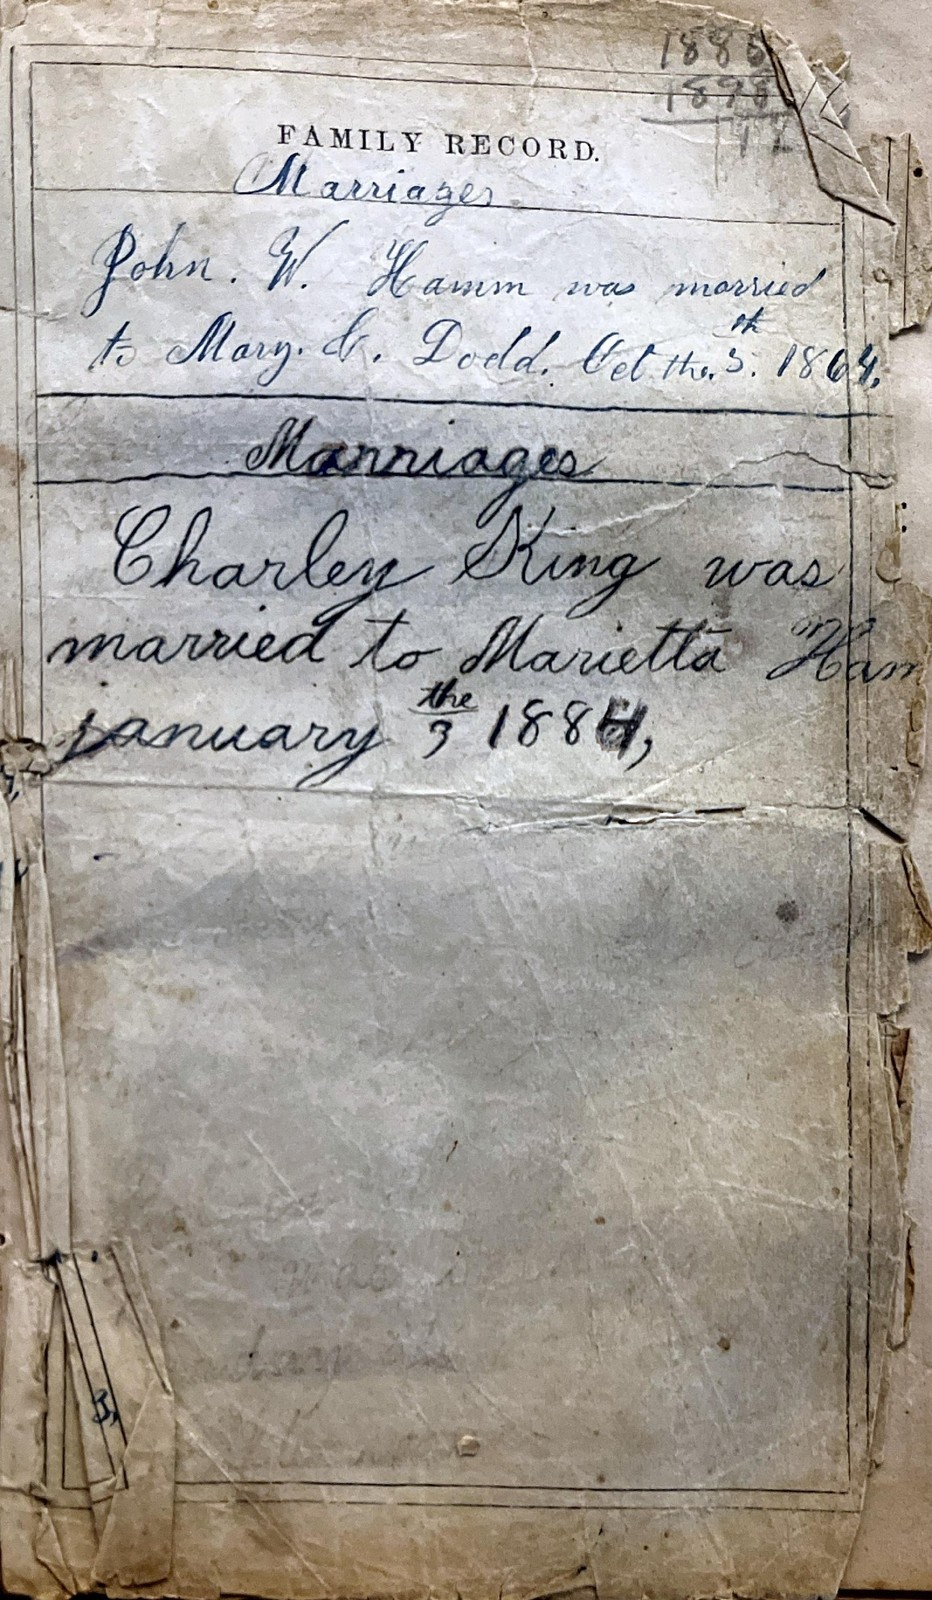 1885
1898
FAMILY RECORD.
Marriages
John. W. Hamm was married
to Mary. C. Dodd. Oct the. 5.th 1864.
Marriages
Charley King was
married to Marietta Ham
january the 3 1884,
3,